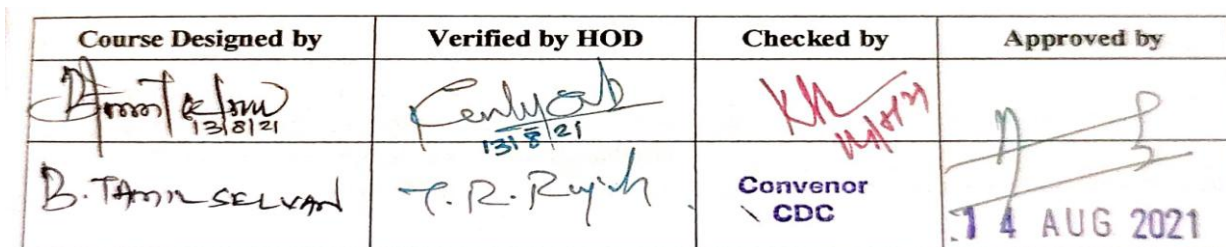 Course Designed by Verified by HOD Checked by Approved by
13/8/21 13/8/21
B. TAMIL SELVAN T. R. Convenor
CDC
14 AUG 2021